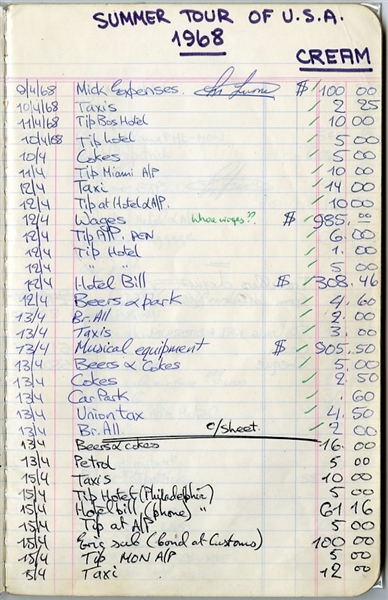 SUMMER TOUR OF U.S.A.
1968
CREAM
9/4/68 Mick Expenses. $ 100 00
10/4/68 Taxis 2 25
11/4/68 Tip Bos Hotel 10 00
10/4/68 Tip hotel 5 00
10/4 Cokes 5 00
11/4 Tip Miami A/P 10 00
12/4 Taxi 14 00
12/4 Tip at Hotel & A/P. 10 00
12/4 Wages Whose wages?? $ 985. 00
12/4 Tip A/P. PEN 6 00
12/4 Tip Hotel 1. 00
12/4 " " 5 00
12/4 Hotel Bill $ 308. 46
12/4 Beers & park 4. 60
13/4 Br. All 2. 00
13/4 Taxis 3. 00
13/4 Musical equipment $ 905. 50
13/4 Beers & Cokes 5. 00
13/4 Cokes 2 50
13/4 Car Park . 60
13/4 Union tax 4. 50
13/4 Br. All c/sheet. 2 00
13/4 Beers & cokes 16. 00
13/4 Petrol 5 00
15/4 Taxis 10 00
15/4 Tip Hotel (Philadelphia) 5 00
15/4 Hotel bill (phone) " 61 16
15/4 Tip at A/P 5 00
15/4 Eric sub (bond at Customs) 100 00
15/4 Tip MON A/P 5 00
15/4 Taxi 12 00